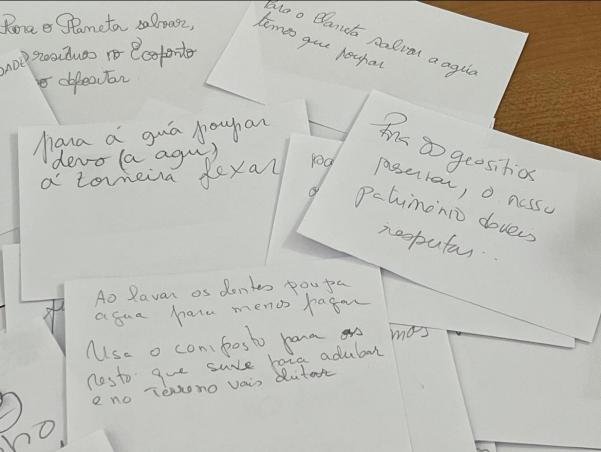 Para o Planeta salvar,
resíduos no Ecoponto
depositar
Para o Planeta salvar a agua
temos que poupar
para á guá poupar
devo (a agu)
á torneira fexar
Para geositios
preservar, o nosso
património deveis
respeitar..
Ao lavar os dentes poupa
agua para menos pagar
Usa o composto para os
resto que serve para adubar
e no Terreno vais deitar
mos